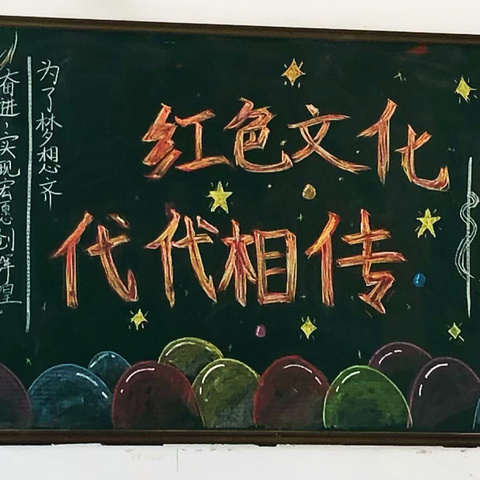 红色文化
代代相传
为了梦想齐
奋进，实现宏愿创辉煌